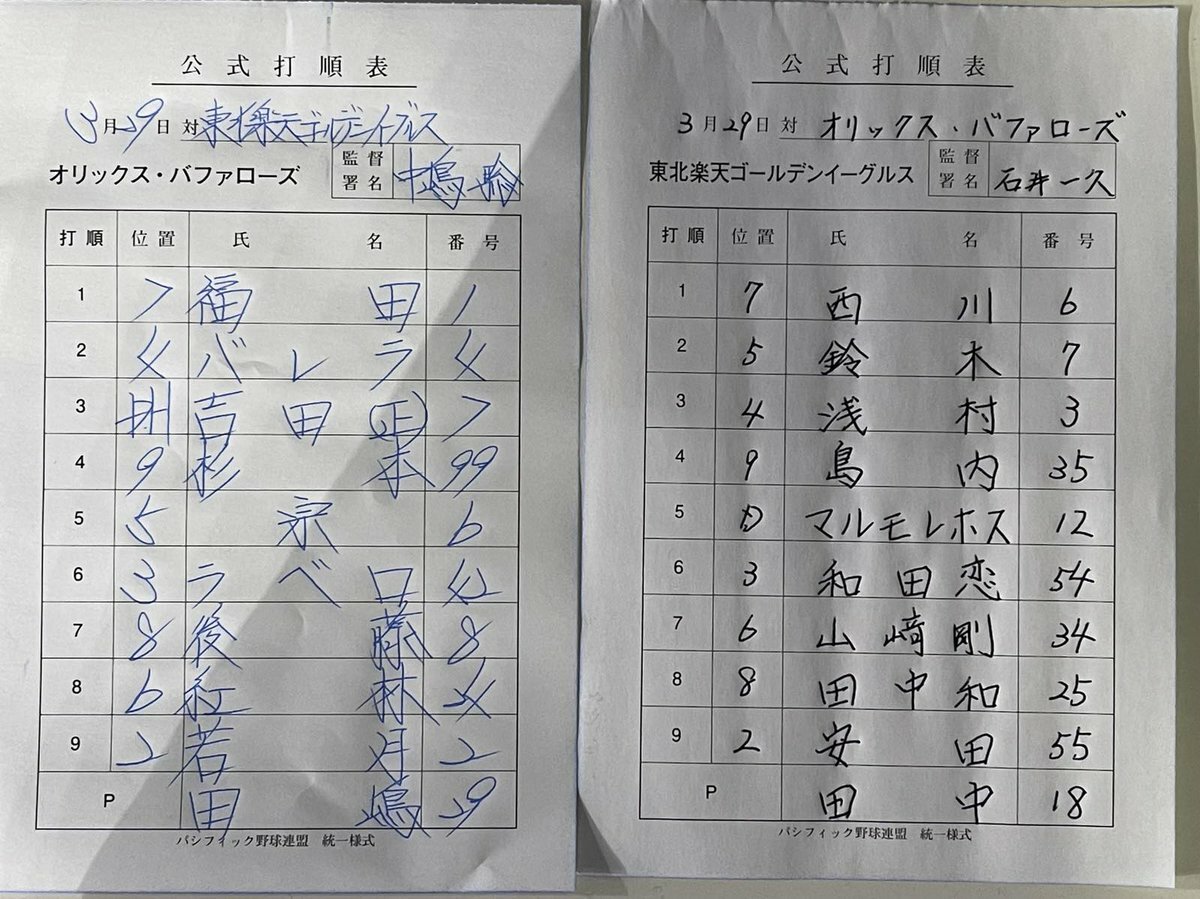 公式打順表
3月29日 対 東北楽天ゴールデンイーグルス
オリックス・バファローズ 監督署名 中嶋聡
打順 位置 氏名 番号
1 7 福田 1
2 4 バレラ 4
3 DH 吉田(正) 7
4 9 杉本 99
5 5 宗 6
6 3 ラベロ 42
7 8 後藤 8
8 6 紅林 24
9 2 若月 2
P 田嶋 29
パシフィック野球連盟 統一様式
公式打順表
3月29日 対 オリックス・バファローズ
東北楽天ゴールデンイーグルス 監督署名 石井一久
打順 位置 氏名 番号
1 7 西川 6
2 5 鈴木 7
3 4 浅村 3
4 9 島内 35
5 D マルモレホス 12
6 3 和田恋 54
7 6 山﨑剛 34
8 8 田中和 25
9 2 安田 55
P 田中 18
パシフィック野球連盟 統一様式